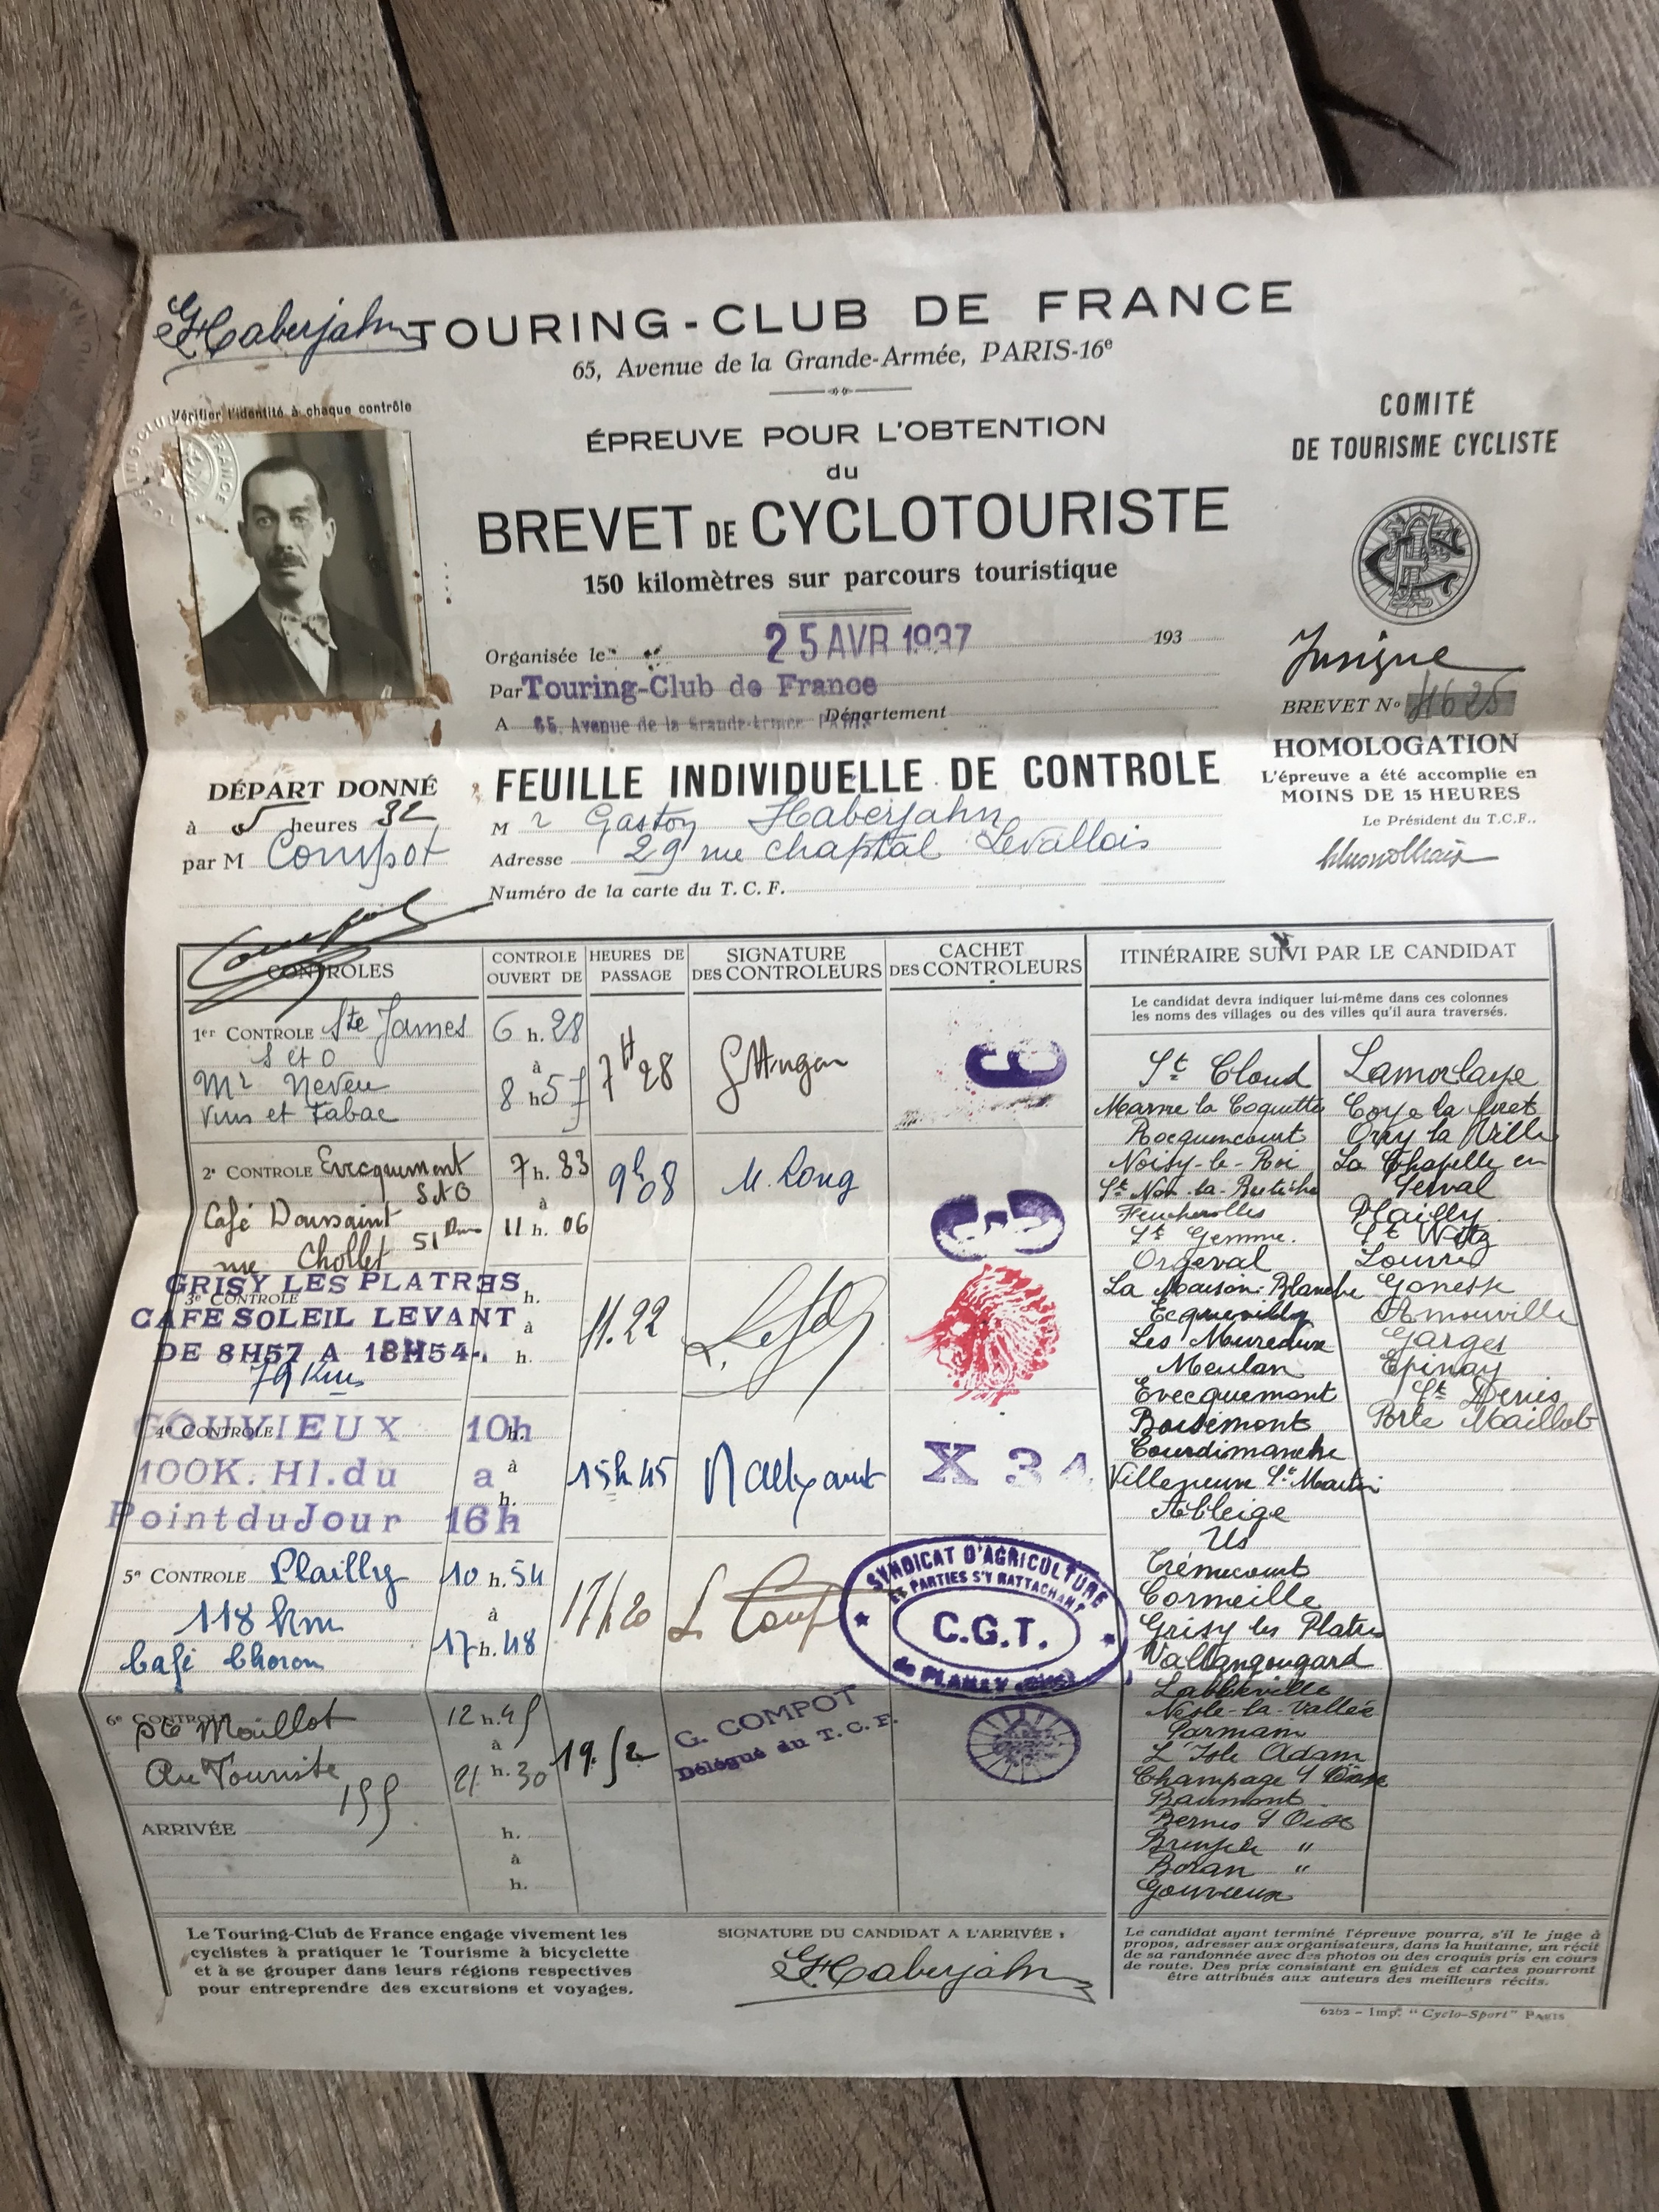 GHaberjahn
TOURING-CLUB DE FRANCE
65, Avenue de la Grande-Armée, PARIS-16e
Vérifier l'identité à chaque contrôle
ÉPREUVE POUR L'OBTENTION
du
BREVET DE CYCLOTOURISTE
150 kilomètres sur parcours touristique
COMITÉ
DE TOURISME CYCLISTE
Organisée le 25 AVR 1937 193
Par Touring-Club de France
A 65, Avenue de la Grande-Armée PARIS Département
Insigne
BREVET No 4625
HOMOLOGATION
L'épreuve a été accomplie en
MOINS DE 15 HEURES
Le Président du T.C.F.,
DÉPART DONNÉ
à 5 heures 32
par M Compot
FEUILLE INDIVIDUELLE DE CONTROLE
M r Gaston Haberjahn
Adresse 29 rue Chaptal Levallois
Numéro de la carte du T.C.F.
CONTRÔLES
CONTROLE OUVERT DE
HEURES DE PASSAGE
SIGNATURE DES CONTROLEURS
CACHET DES CONTROLEURS
ITINÉRAIRE SUIVI PAR LE CANDIDAT
Le candidat devra indiquer lui-même dans ces colonnes
les noms des villages ou des villes qu'il aura traversés.
1er CONTROLE Ste James
S et O
Mr Neveu
Vins et Tabac
6 h. 28
à
8 h 57
7H28
2e CONTROLE Evecquemont
S & O
Café Doussaint 51 Km
rue Chollet
7 h. 33
à
11 h. 06
9h08
M. Long
GRISY LES PLATRES
3e CONTROLE
CAFE SOLEIL LEVANT
DE 8H57 A 13H54.
79 Kms
h.
à
h.
11.22
GOUVIEUX 10h
4e CONTROLE h.
100K. Hl. du a à
Point du Jour 16h
h.
15h45
X 34
5e CONTROLE Plailly
118 km
Café Choron
10 h. 54
à
17 h. 48
17h20
SYNDICAT D'AGRICULTURE
ET PARTIES S'Y RATTACHANT
C.G.T.
de PLAILLY (Oise)
6e CONTROLE
Pte Maillot
Au Touriste
155
12 h. 45
à
21 h. 30
19.52
G. COMPOT
Délégué du T.C.F.
ARRIVÉE
h.
à
h.
St Cloud
Marne la Coquette
Rocquencourt
Noisy-le-Roi
St Nom-la-Bretèche
Feucherolles
St Gemme.
Orgeval
La Maison-Blanche
Ecquevilly
Les Mureaux
Meulan
Evecquemont
Boisemont
Courdimanche
Villeneuve St Martin
Ableige
Us
Crémecourt
Cormeille
Grisy les Platres
Vallangougard
Labbeville
Nesle-la-Vallée
Parmain
L'Isle Adam
Champage S/ Oise
Baumont
Bernes S/ Oise
Bruyère "
Boran "
Gouvieux
Lamorlaye
Coye la foret
Orry la Ville
La Chapelle en
Serval
Plailly
St Witz
Louvres
Gonesse
Arnouville
Garges
Epinay
St Denis
Porte Maillot
Le Touring-Club de France engage vivement les
cyclistes à pratiquer le Tourisme à bicyclette
et à se grouper dans leurs régions respectives
pour entreprendre des excursions et voyages.
SIGNATURE DU CANDIDAT A L'ARRIVÉE :
GHaberjahn
Le candidat ayant terminé l'épreuve pourra, s'il le juge à
propos, adresser aux organisateurs, dans la huitaine, un récit
de sa randonnée avec des photos ou des croquis pris en cours
de route. Des prix consistant en guides et cartes pourront
être attribués aux auteurs des meilleurs récits.
6262 - Imp. "Cyclo-Sport" PARIS